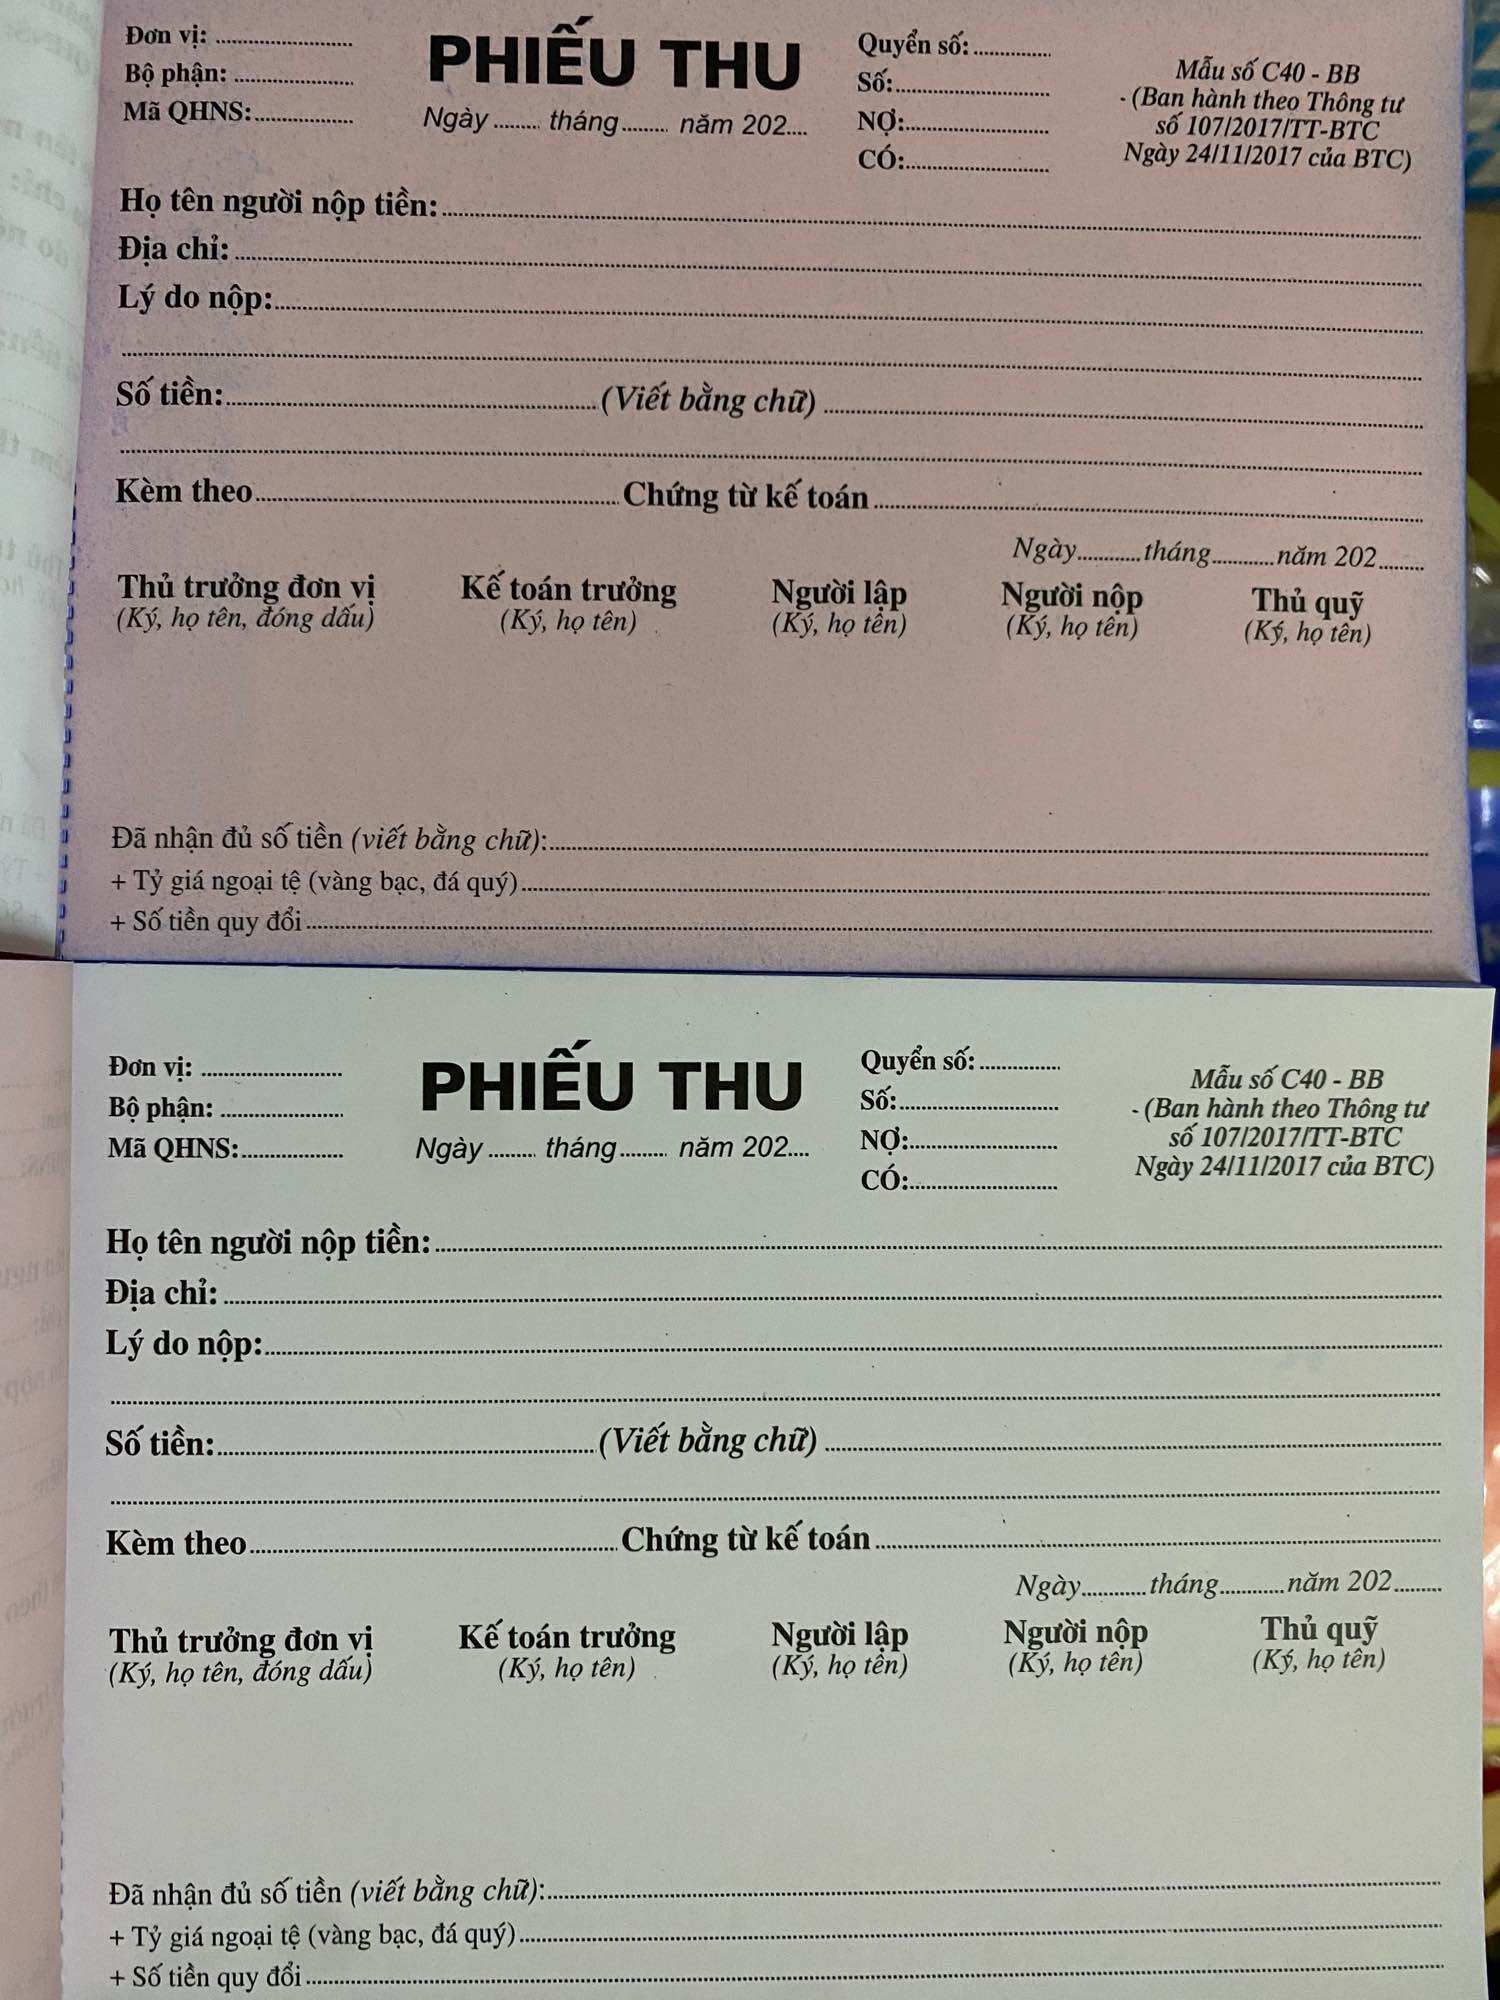 Đơn vị: ....................
Bộ phận: ....................
Mã QHNS:....................
PHIẾU THU
Ngày ......... tháng......... năm 202....
Quyển số: ..............
Số:..............................
NỢ:..............................
CÓ:..............................
Mẫu số C40 - BB
- (Ban hành theo Thông tư
số 107/2017/TT-BTC
Ngày 24/11/2017 của BTC)
Họ tên người nộp tiền:..............................
Địa chỉ: ..............................
Lý do nộp:..............................
Số tiền:..............................(Viết bằng chữ) ..............................
Kèm theo..............................Chứng từ kế toán ..............................
Ngày...........tháng...........năm 202........
Thủ trưởng đơn vị Kế toán trưởng Người lập Người nộp Thủ quỹ
(Ký, họ tên, đóng dấu) (Ký, họ tên) (Ký, họ tên) (Ký, họ tên) (Ký, họ tên)
Đã nhận đủ số tiền (viết bằng chữ):..............................
+ Tỷ giá ngoại tệ (vàng bạc, đá quý)..............................
+ Số tiền quy đổi ..............................
Đơn vị: ....................
Bộ phận: ....................
Mã QHNS:....................
PHIẾU THU
Ngày ......... tháng......... năm 202....
Quyển số: ..............
Số:..............................
NỢ:..............................
CÓ:..............................
Mẫu số C40 - BB
- (Ban hành theo Thông tư
số 107/2017/TT-BTC
Ngày 24/11/2017 của BTC)
Họ tên người nộp tiền:..............................
Địa chỉ: ..............................
Lý do nộp:..............................
Số tiền:..............................(Viết bằng chữ) ..............................
Kèm theo..............................Chứng từ kế toán ..............................
Ngày...........tháng...........năm 202........
Thủ trưởng đơn vị Kế toán trưởng Người lập Người nộp Thủ quỹ
(Ký, họ tên, đóng dấu) (Ký, họ tên) (Ký, họ tên) (Ký, họ tên) (Ký, họ tên)
Đã nhận đủ số tiền (viết bằng chữ):..............................
+ Tỷ giá ngoại tệ (vàng bạc, đá quý)..............................
+ Số tiền quy đổi ..............................